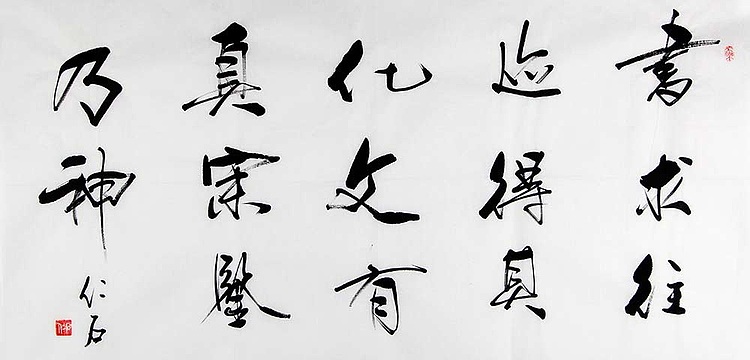 書求往
迹得其
化文有
真宗鑒
乃神
仁石